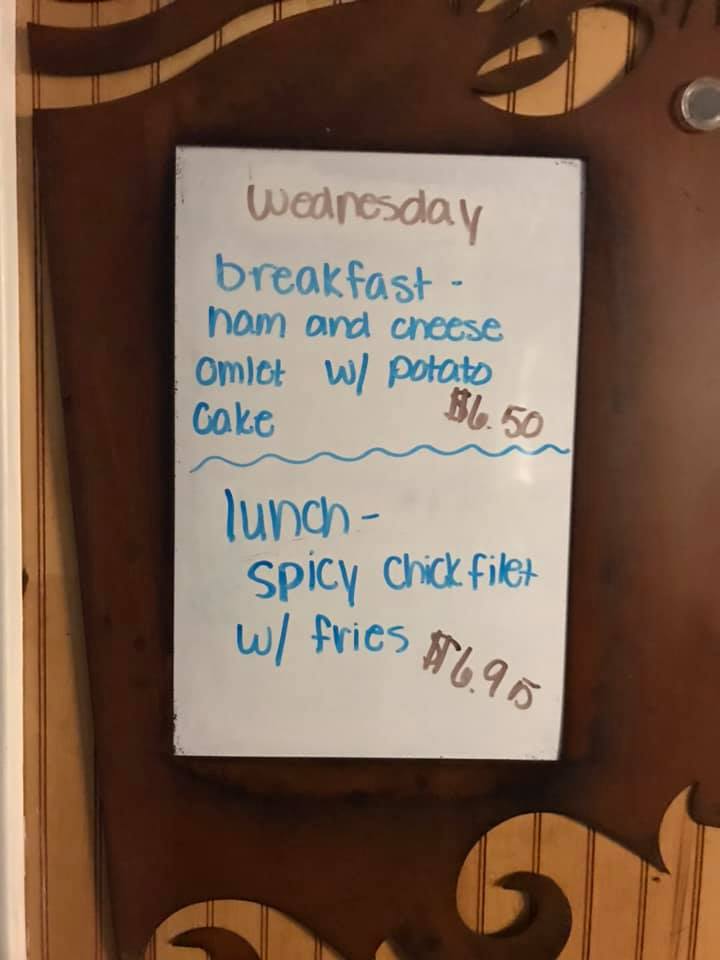 Wednesday
breakfast -
ham and cheese
omlet w/ potato
cake $6.50
lunch -
spicy chick filet
w/ fries $6.95